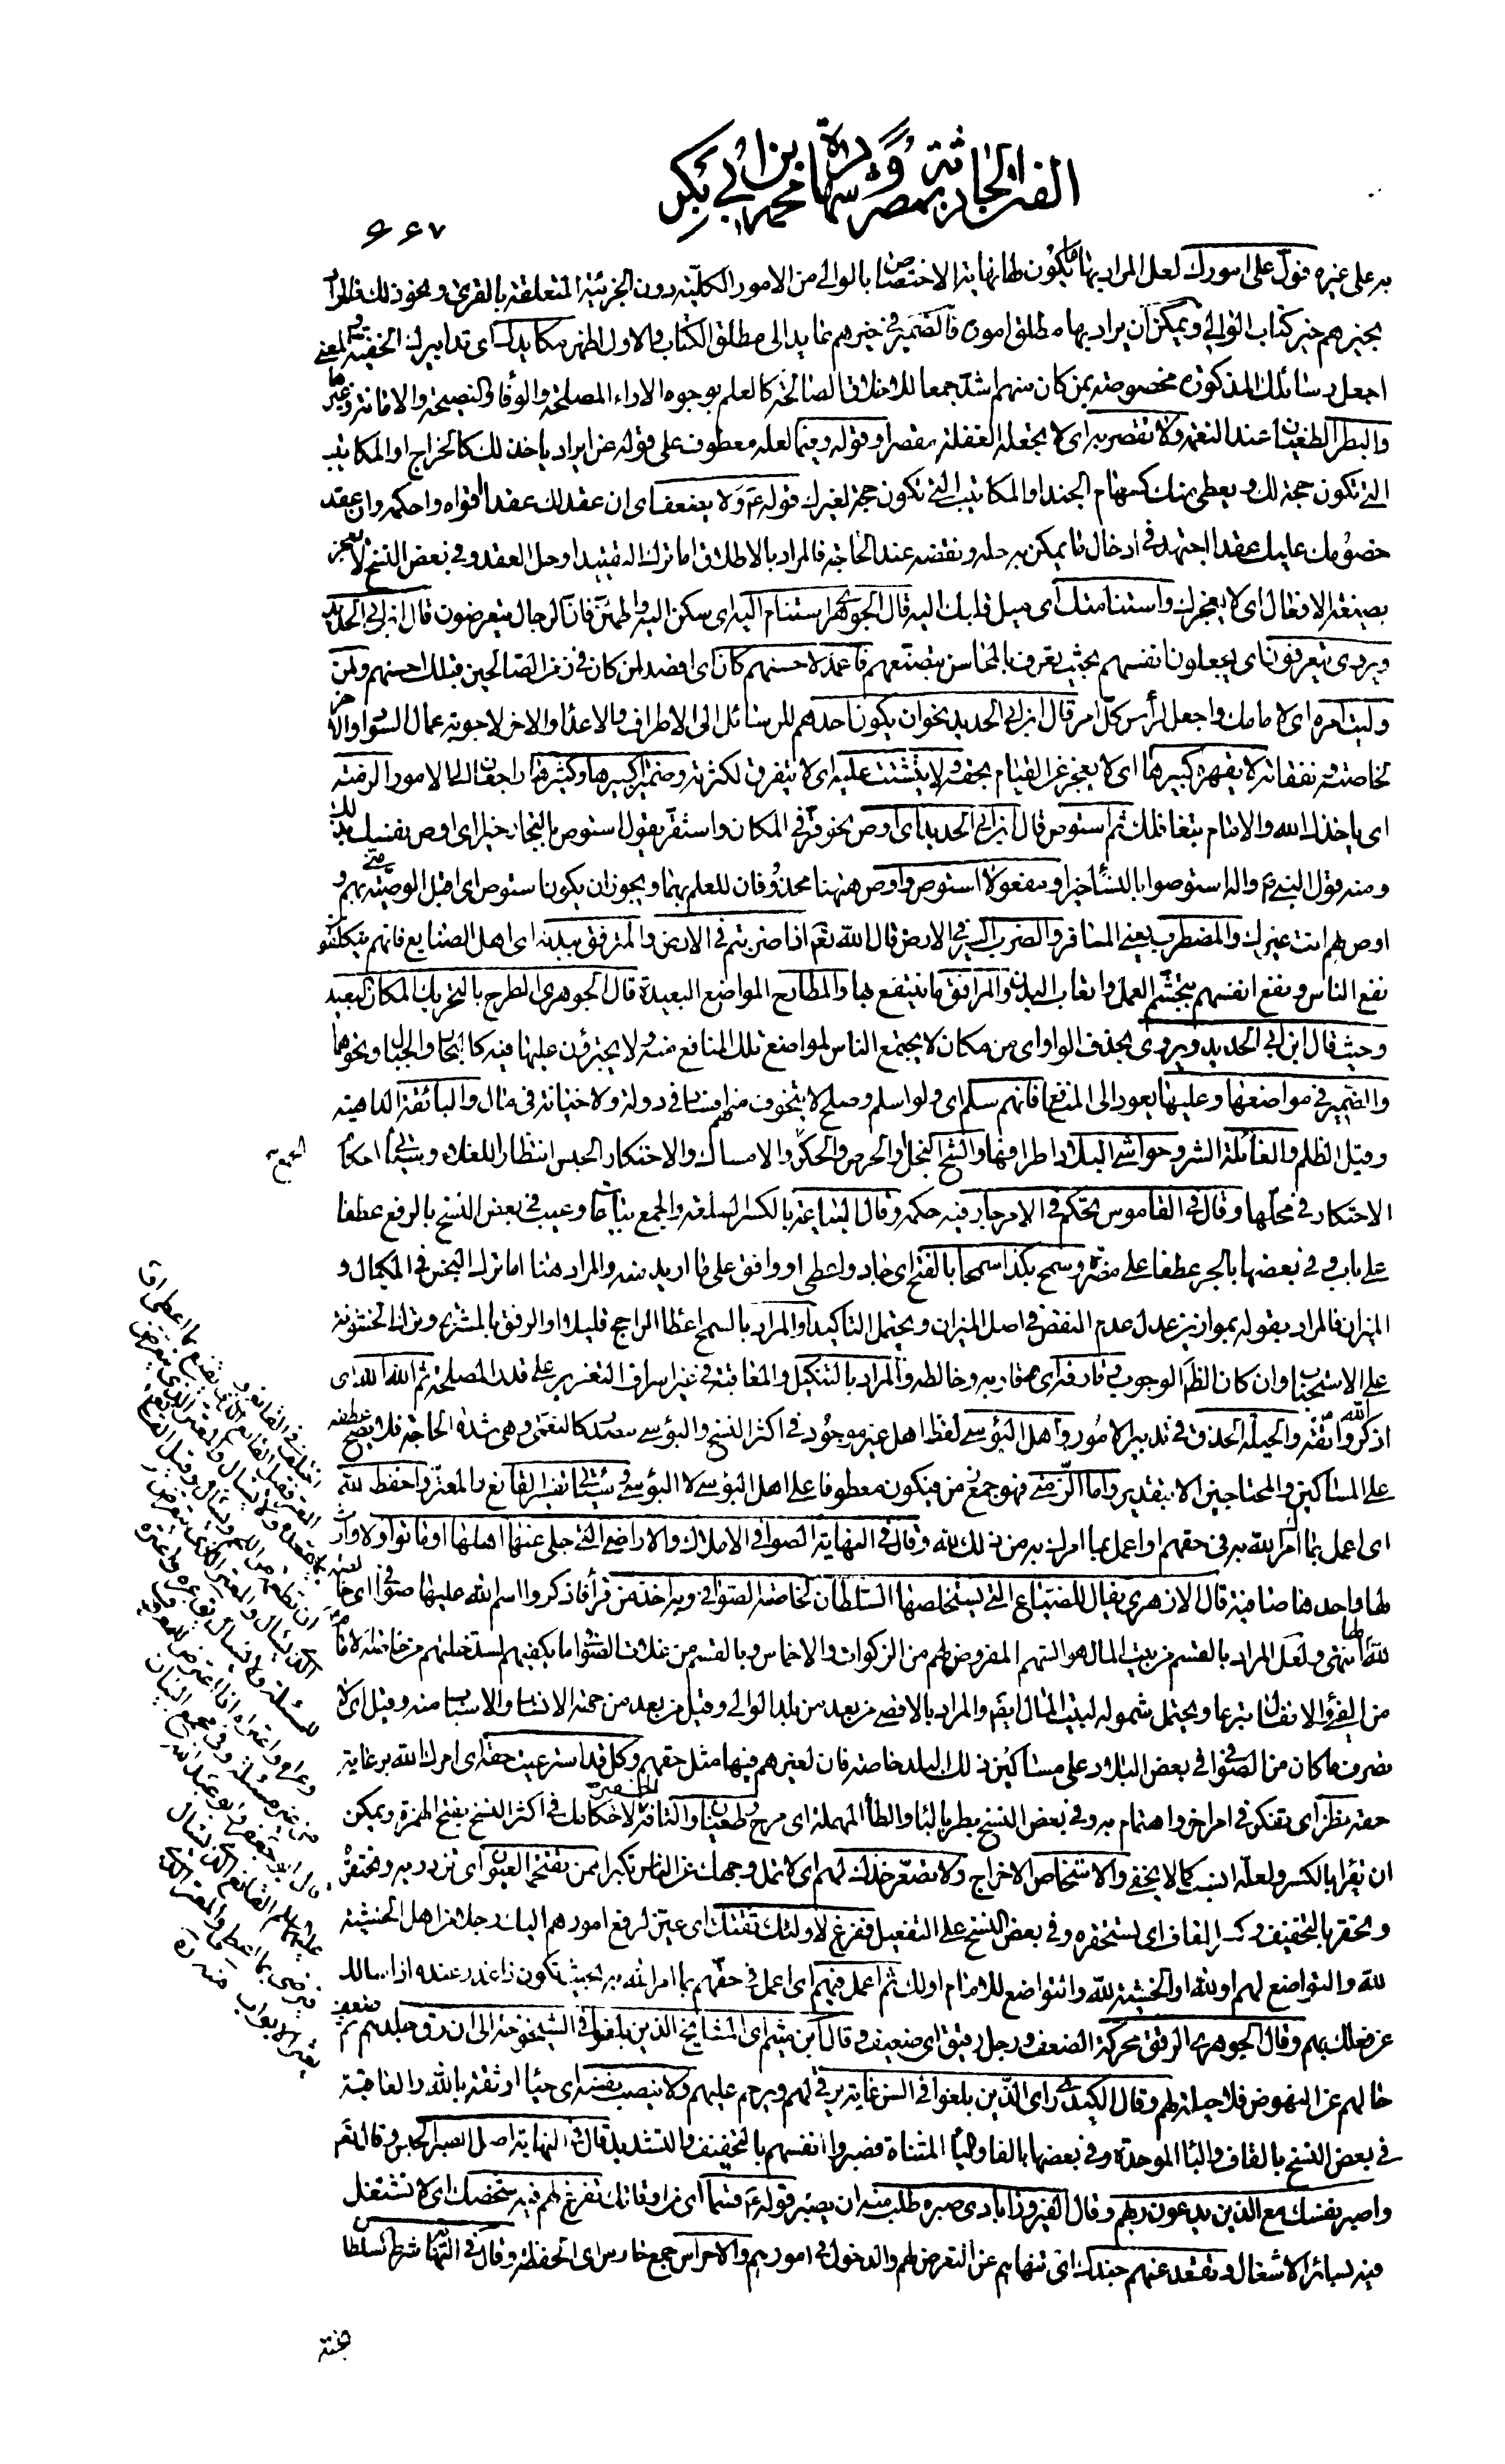 الفتن الحادثة بمصر وشهادة محمد بن أبي بكر
۶۶۷
به على غيره فول على امورك لعل المراد بها ما يكون لها نهاية الاختصاص بالوالي من الامور الكلية دون الجزئية المتعلقة بالقرى ونحو ذلك فالمراد
بخيرهم خير كتاب الوالي ويمكن ان يراد بها مطلق اموره فالضمير في خيرهم عائد الى مطلق الكتاب والاول اظهر مكايدك اى تدابيرك الخفية والمعنى
اجعل رسائلك المذكورة مخصوصة بمن كان منهم اشد جمعا للاخلاق الصالحة كالعلم بوجوه الاراء المصلحة والوفاء والنصيحة والامانة وغيرها
والبطر الطغيان عند النعمة ولا تقصر به اى لا يجعله الغفلة مقصرا وقوله وفيما لعله معطوف على قوله عن ايراد ياخذ لك كالخراج او المكاتيب
التى تكون حجة لك ويعطى منك كسهام الجند او المكاتيب التى تكون حجة لغيرك قوله ع ولا يضعف اى ان عقد لك عقدا قواه واحكمه وان عقد
خصومك عليك عقدا اجتهد في ادخال ما يمكن به حله ونقضه عند الحاجة فالمراد بالاطلاق اما ترك التقييد او حل العقد وفي بعض النسخ لا يعجز
بصيغة الافعال اى لا يعجزك واستنامتك اى ميل قلبك اليه قال الجوهرى استنام اليه اى سكن اليه واطمئن فان الرجال يتعرضون قال ابن ابي الحديد
ويروى يتعرفون اى يجعلون انفسهم بحيث يعرف بالمحاسن بتصنعهم فاعمد لاحسنهم كان اى اقصد لمن كان في زمن الصالحين قبلك احسنهم ولمن
وليت امره اى لامامك واجعل لرأس كل امر قال ابن ابي الحديد نحو ان يكون احدهم للرسائل الى الاطراف والاعداء والاخر لاجوبة عمال السواد والاخر
لخاصته ونفقاته لا يقهره كبيرها اى لا يعجز عن القيام بحقه ولا يتشتت عليه اى لا يتفرق لكثرته وضمير كبيرها وكثيرها راجعان الى الامور الزمته
اى ياخذك الله والامام بتغافلك ثم استوص قال ابن ابي الحديد اى اوص نحو قر في المكان واستقر يقول استوص بالتجار خيرا اى اوص نفسك بذلك
ومنه قول النبي ص واله استوصوا بالنساء خيرا ومفعولا استوص واوص ههنا محذوفان للعلم بهما ويجوز ان يكون استوص اى اقبل الوصية منى بهم و
اوص بهم انت غيرك والمضطرب يعنى المسافر والضرب السير في الارض قال الله تعم اذا ضربتم في الارض والمترفق ببدنه اى اهل الصنايع فانهم يتكلفون
نفع الناس ونفع انفسهم بتجشم العمل واتعاب البدن والمرافق ما ينتفع بها والمطارح المواضع البعيدة قال الجوهرى الطرح بالتحريك المكان البعيد
وحيث قال ابن ابي الحديد ويروى بحذف الواو اى من مكان لا يجتمع الناس لمواضع تلك المنافع منه ولا يجترؤن عليها فيه كالبحار والجبال ونحوهما
والضمير في مواضعها وعليها يعود الى المنافع فانهم سلم اى اولو اسلم وصلح لا يتخوف منهم افساد في دولة ولا خيانة في مال والبائقة الداهية
وقيل الظلم والغائلة الشر وحواشى البلاد اطرافها والشح البخل والحرص والحكر والامساك والاحتكار الحبس انتظار اللغلاء وسيأتي احكام
الاحتكار في محلها وقال في القاموس تحكم في الامر جار فيه حكمه وقال البياعة بالكسر السلعة والجمع بياعات وعيب في بعض النسخ بالرفع عطفا
على باب وفي بعضها بالجر عطفا على مضرة وسمح بكذا سمحا بالفتح اى جاد واعطى او وافق على ما اريد منه والمراد هنا اما ترك البخس في المكيال و
الميزان فالمراد بقوله بموازين عدل عدم النقص في اصل الميزان ويحتمل التأكيد او المراد بالسمح اعطاء الراجح قليلا او الرفق بالمشترى وترك الخشونة
على الاستحباب وان كان الظاهر الوجوب وقارفه اى قاربه وخالطه والمراد بالتنكيل والمعاقبة في غير اسراف التعزير على قدر المصلحة ثم الله الله اى
اذكروا الله او اتقه والحيلة الحذق في تدبير الامور واهل البؤسى لفظ اهل غير موجود في اكثر النسخ والبؤسى مصدر كالنعمى وهى شدة الحاجة فلا يصح عطفه
على المساكين والمحتاجين الا بتقدير واما الزمنى فهو جمع زمن فيكون معطوفا على اهل البؤسى لا البؤسى وسيأتى تفسير القانع والمعتر واحفظ لله
اى اعمل بما امر الله به في حقهم او اعمل بما امرك به من ذلك لله وقال في النهاية الصوافي الاملاك والاراضي التى جلى عنها اهلها او ماتوا ولا وارث
لها واحدها صافية قال الازهرى يقال للضياع التى يستخلصها السلطان لخاصته الصوافي وبه اخذ من قرأ فاذكروا اسم الله عليها صوافي اى خالصة
لله انتهى ولعل المراد بالقسم من بيت المال هو السهم المفروض لهم من الزكوات والاخماس وبالقسم من غلات الصوافي ما يكفيهم لسد خلتهم من خاصة الامام
من الفئ والانفال تبرعا ويحتمل شموله لبيت المال ايضا والمراد بالاقصى من بعد من بلد الوالي وقيل من بعد من جهة الانساب والاسباب منه وقيل اى لا
تصرف ما كان من الصوافي في بعض البلاد على مساكين ذلك البلد خاصة فان لغيرهم فيها مثل حقهم وكل قد استرعيت حقه اى امرك الله برعاية
حقه نظر اى تفكر في امر اخر واهتمام به وفي بعض النسخ بطر بالباء والطاء المهملة اى مرح وطغيان والتافه الحقير لاحكامك في اكثر النسخ بفتح الهمزة ويمكن
ان يقرأ بالكسر ولعله انسب كما لا يخفى والاشخاص الاخراج ولا تصعر خدك لهم اى لا تمل وجهك عن الناس تكبرا ممن تقتحمه العيون اى تزدريه وتحتقره
وتحقره بالتخفيف وكسر القاف اى تستحقره وفي بعض النسخ على التفعيل ففرغ لاولئك ثقتك اى عين لرفع امورهم اليك رجلا من اهل الخشية
لله والتواضع لهم او لله او الخشية لله والتواضع للامام اولئك ثم اعمل فيهم اى اعمل في حقهم بما امر الله به بحيث تكون ذا عذر عنده اذا سالك
عن فعلك بهم وقال الجوهرى الرقق محركة الضعف ورجل رقيق اى ضعيف وقال ابن ميثم اى المشايخ الذين بلغوا في الشيخوخة الى ان رق جلدهم ثم ضعف
حالهم عن النهوض فلا حيلة لهم وقال الكيدرى اى الذين بلغوا في السن غاية يرق لهم ويرحم عليهم ولا ينصب نفسه اى حياء او ثقة بالله والعاقبة
في بعض النسخ بالقاف والباء الموحدة وفي بعضها بالفاء والياء المثناة فصبروا انفسهم بالتخفيف والتشديد قال في النهاية اصل الصبر الحبس وقال تعم
واصبر نفسك مع الذين يدعون ربهم وقال الفيروزابادى صبره طلب منه ان يصبر قوله ع قسما اى من اوقاتك تفرغ لهم فيه شخصك اى لا تشتغل
فيه لسائر الاشغال وتقعد عنهم جندك اى تنهاهم عن التعرض لهم والدخول في امورهم والاحراس جمع حارس اى الحفظة وقال في النهاية شرط السلطان
نخبة